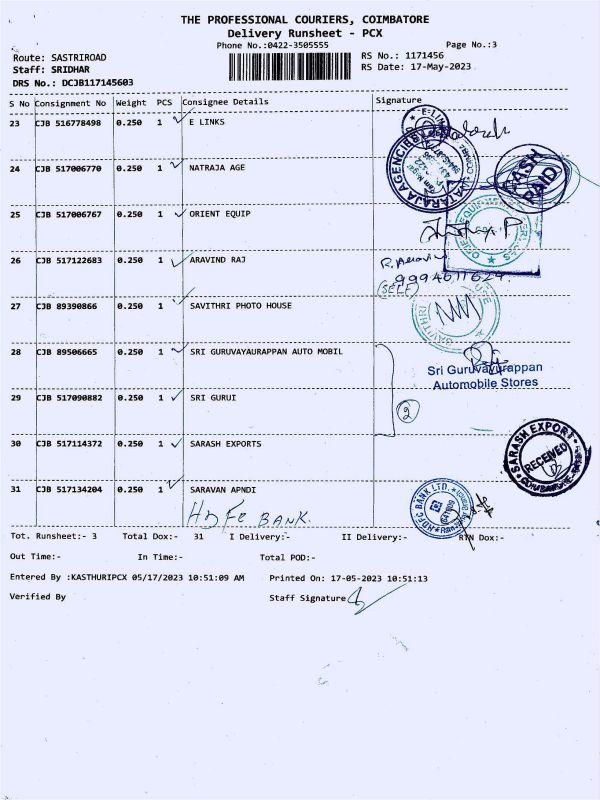 THE PROFESSIONAL COURIERS, COIMBATORE
Delivery Runsheet - PCX
Phone No.:0422-3505555
Page No.:3
Route: SASTRIROAD
RS No.: 1171456
Staff: SRIDHAR
RS Date: 17-May-2023
DRS No.: DCJB117145603
S No Consignment No Weight PCS Consignee Details Signature
23 CJB 516778498 0.250 1 E LINKS
24 CJB 517006770 0.250 1 NATRAJA AGE
NATARAJA AGENCIES
CASH PAID
25 CJB 517006767 0.250 1 ORIENT EQUIP
26 CJB 517122683 0.250 1 ARAVIND RAJ
9994611629
(SELF)
27 CJB 89390866 0.250 1 SAVITHRI PHOTO HOUSE
SAVITHRI
28 CJB 89506665 0.250 1 SRI GURUVAYAURAPPAN AUTO MOBIL
Sri Guruvayurappan
Automobile Stores
29 CJB 517090882 0.250 1 SRI GURUI
2
30 CJB 517114372 0.250 1 SARASH EXPORTS
SARASH EXPORT
RECEIVED
31 CJB 517134204 0.250 1 SARAVAN APNDI
HDFC BANK.
HDFC BANK LTD.
Tot. Runsheet:- 3 Total Dox:- 31 I Delivery:- II Delivery:- RTN Dox:-
Out Time:- In Time:- Total POD:-
Entered By :KASTHURIPCX 05/17/2023 10:51:09 AM Printed On: 17-05-2023 10:51:13
Verified By Staff Signature